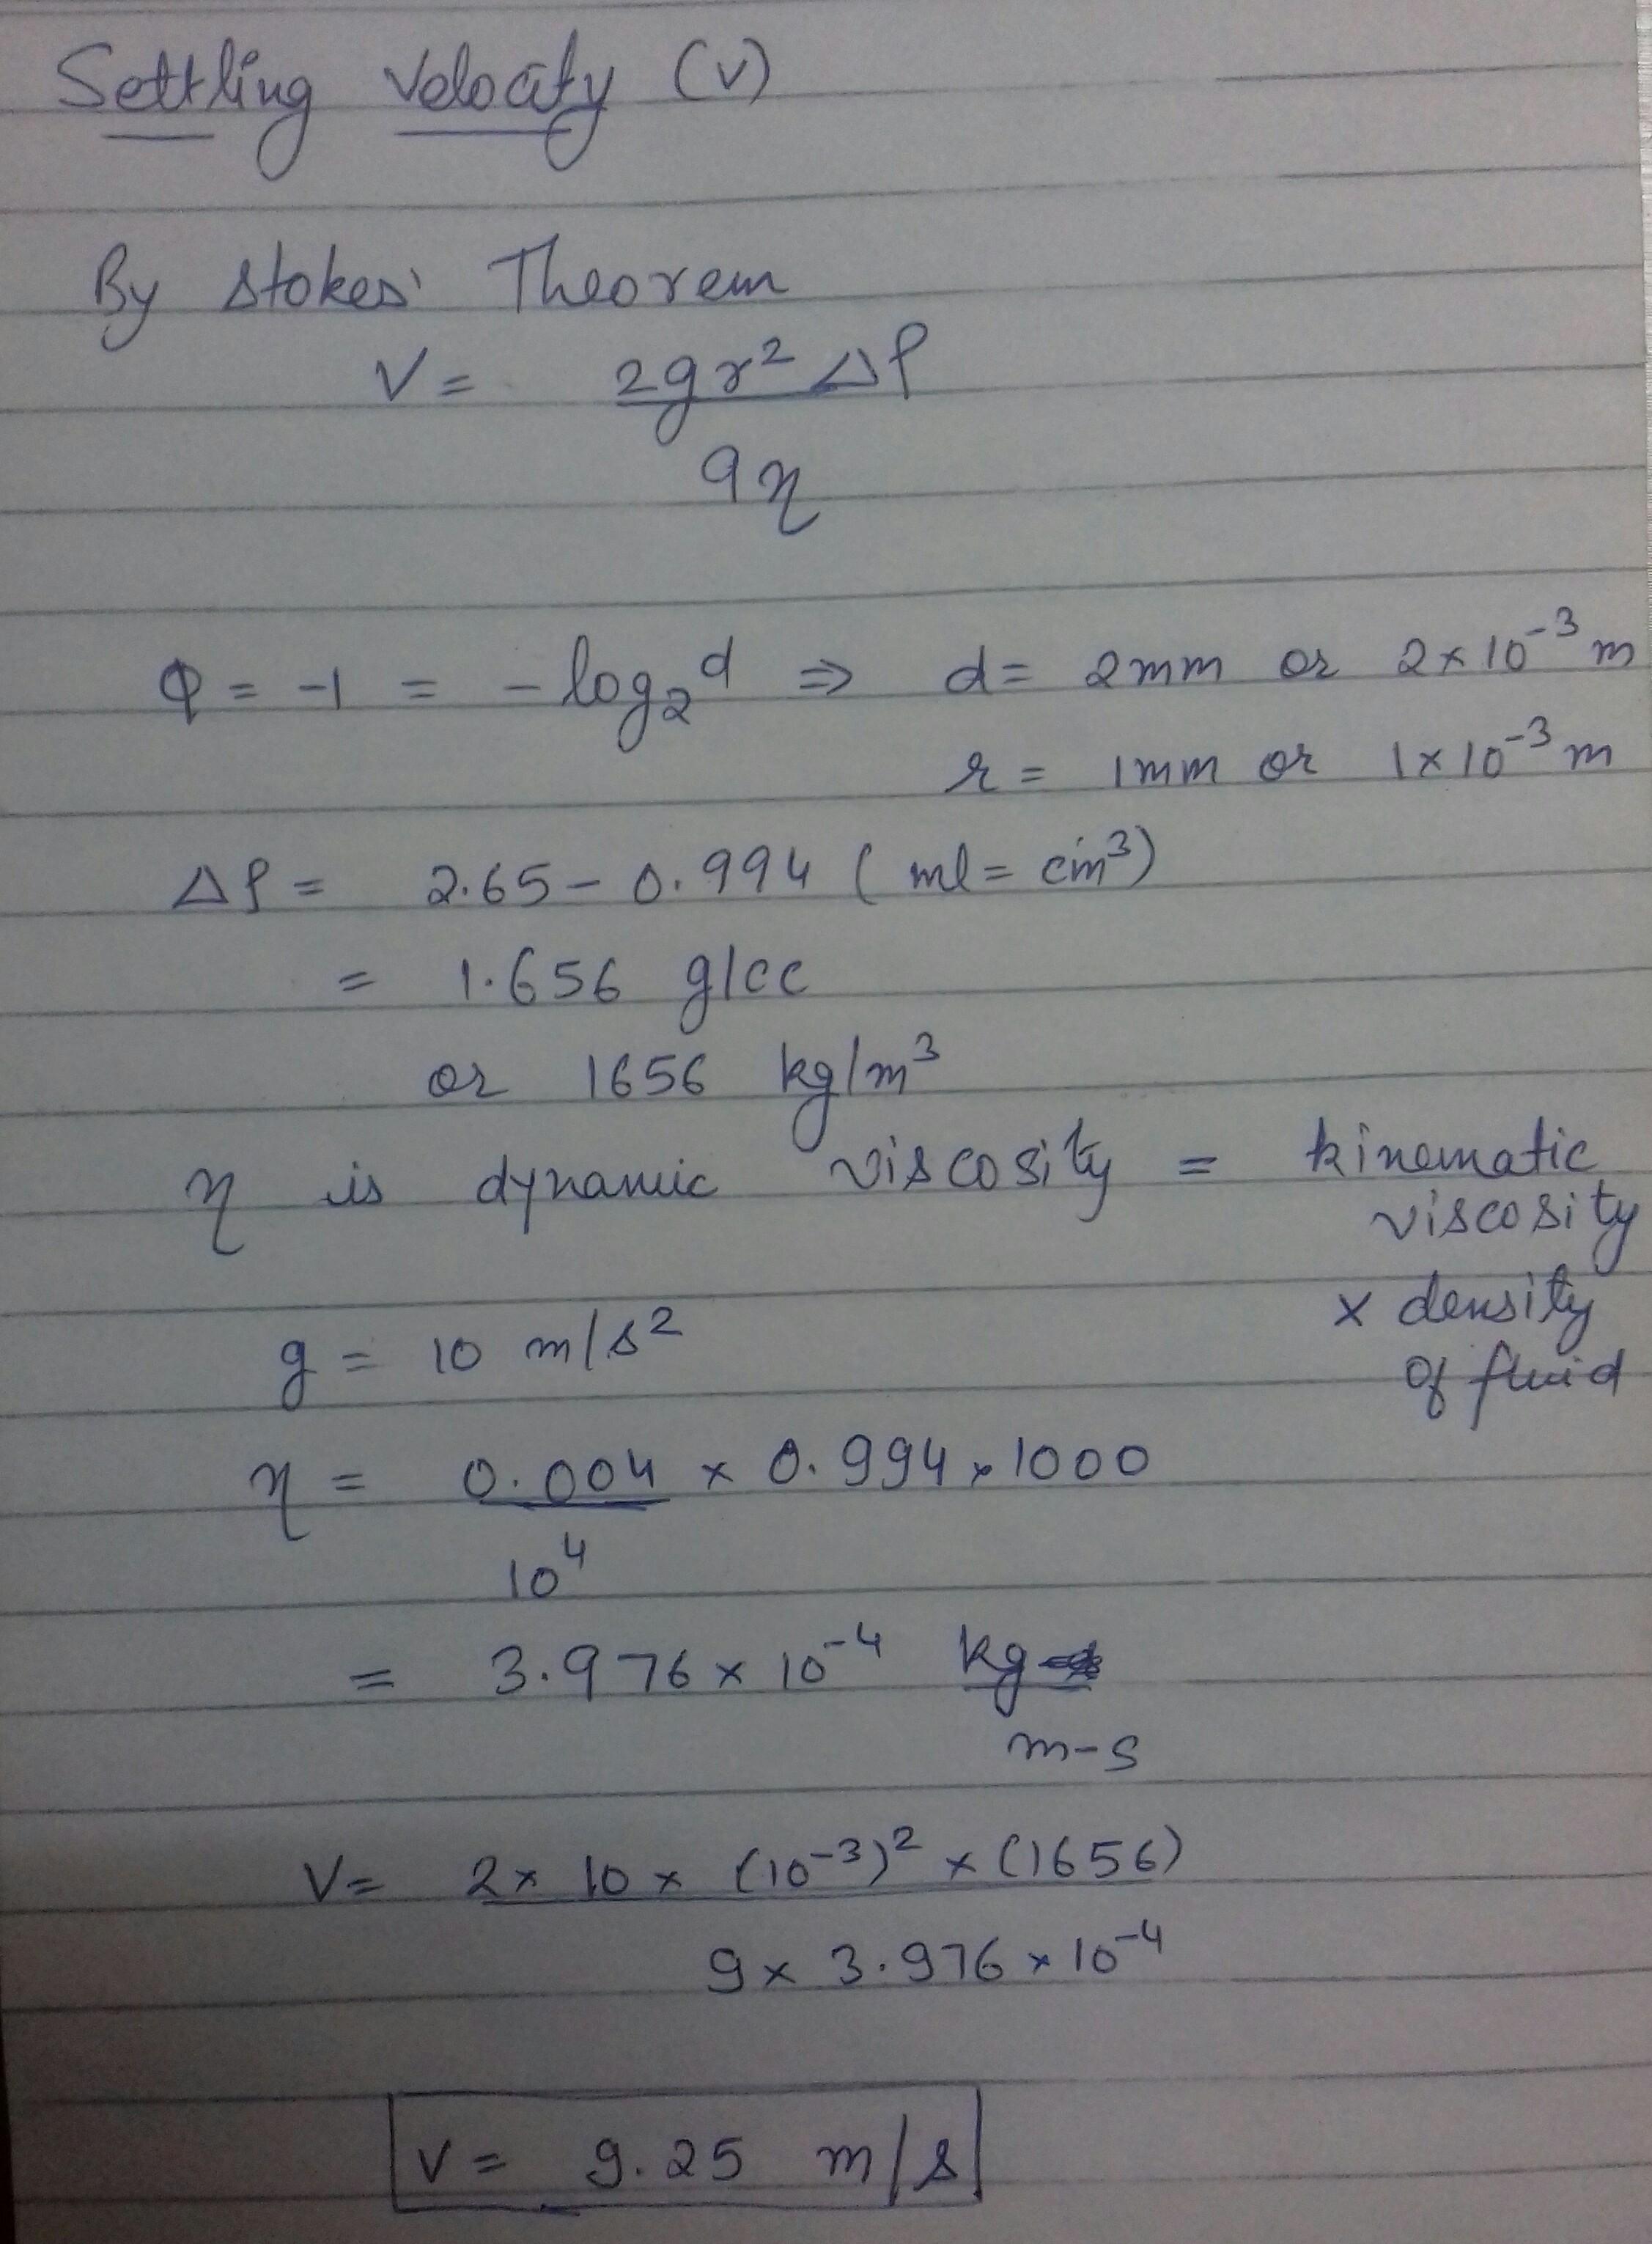 Settling Velocity (v)
By Stokes' Theorem
V = 2gr² Δρ
9η
Φ = -1 = -log₂d ⇒ d = 2mm or 2×10⁻³ m
r = 1mm or 1×10⁻³ m
Δρ = 2.65 - 0.994 (ml = cm³)
= 1.656 g/cc
or 1656 kg/m³
η is dynamic viscosity = kinematic
viscosity
× density
of fluid
g = 10 m/s²
η = 0.004 × 0.994 × 1000
10⁴
= 3.976 × 10⁻⁴ kg
m-s
V = 2 × 10 × (10⁻³)² × (1656)
9 × 3.976 × 10⁻⁴
V = 9.25 m/s